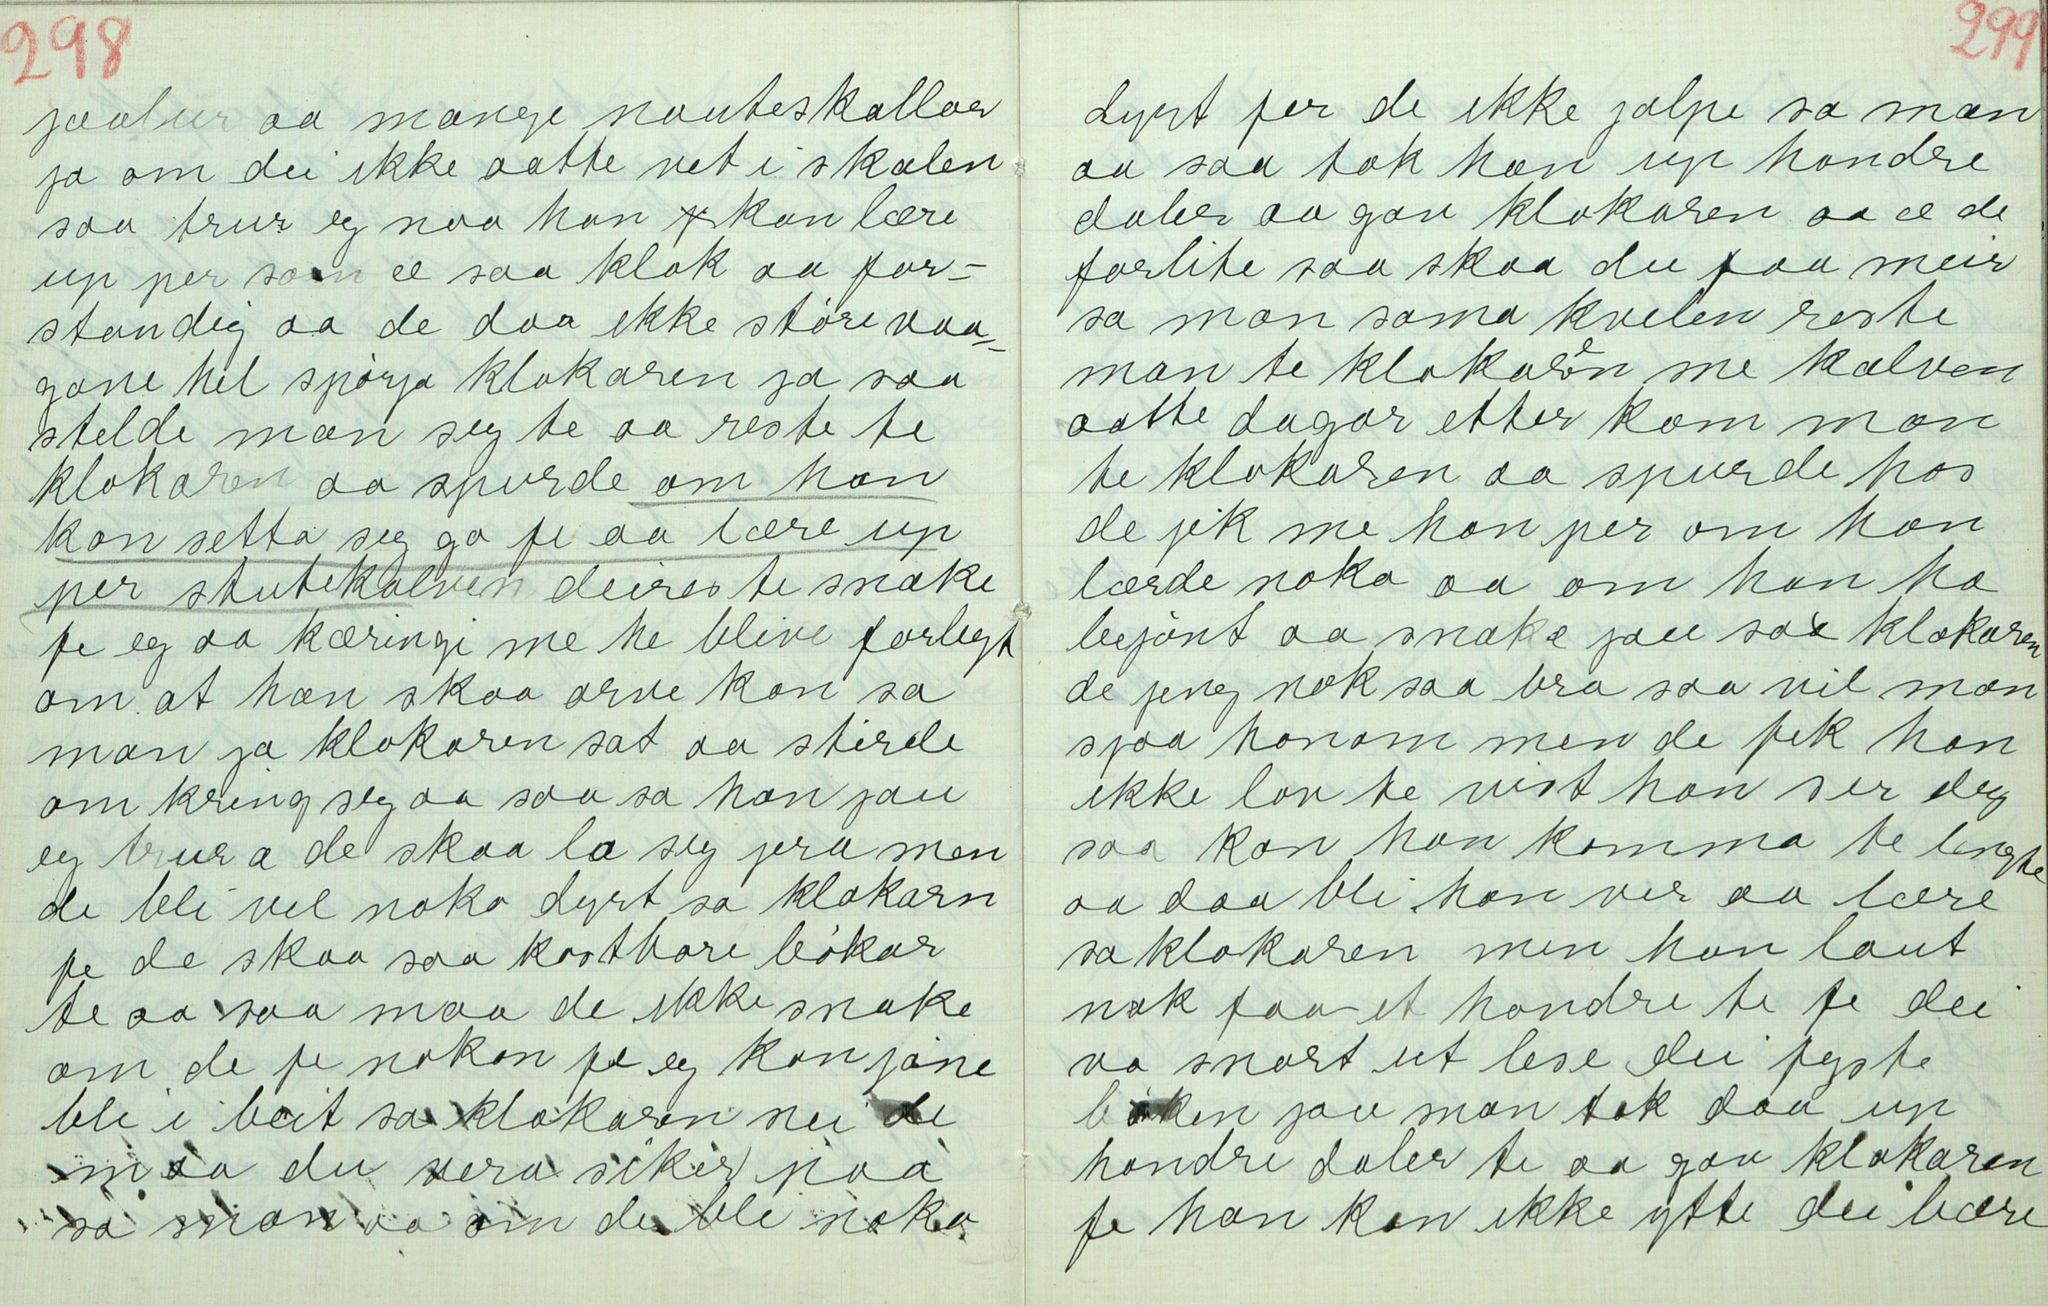 298
jaalur aa mange nauteskallar
ja om dei ikke aatte vet i skalen
saa trur eg naa han kan lære
up per som æ saa klok aa for-
standig aa de daa ikke störe vaa=
gane hel spörja klokaren ja saa
stelde man seg te aa reste te
klokaren aa spurde om han
kan setta seg go fe aa lære up
per stutekalven deires te snake
fe eg aa kæringi me he blive forlegt
om at han skaa arve kan sa
man ja klokaren sat aa stirde
om kring seg aa saa sa han jau
eg trur a de skaa la seg jera men
de bli vel noko dyrt sa klokarn
fe de skaa saa kostbare bökar
te aa saa maa de ikke snake
om de fe nokon fe eg kan jäne
bli i beit sa klokaren nei de
maa du vera siker paa
sa man aa om de bli noko
299
dyrt fer de ikke jalpe sa man
aa saa tok han up hondre
daler aa gav klokaren aa æ de
forlite saa skaa du faa meir
sa man sama kvelen reste
man te klokaren me kalven
aatte dagar etter kom man
te klokaren aa spurde hos
de jik me han per om han
lærde noko aa om han ha
bejönt aa snake jau sa klokaren
de jeng nok saa bra saa vil man
sjaa honom men de fek han
ikke lov te vist han ser deg
saa kan han komma te lengte
aa daa bli han ver aa lære
sa klokaren men han laut
nok faa et hondre te fe dei
va snart ut lese dei fyste
böken jau man tok daa up
hondre daler te aa gav klokaren
fe han kan ikke ytte dei bære